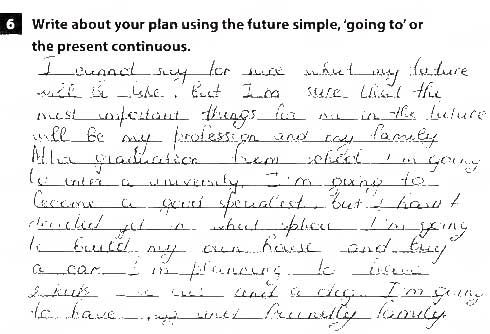 6 Write about your plan using the future simple, 'going to' or
the present continuous.
I cannot say for sure what my future
will be like. But I'm sure that the
most important things for me in the future
will be my profession and my family
After graduation from school I'm going
to enter a university. I'm going to
become a good specialist. But I haven't
decided yet in what sphere I'm going
to build my own house and buy
a car. I'm planning to have
a cat and a dog. I'm going
to have and friendly family